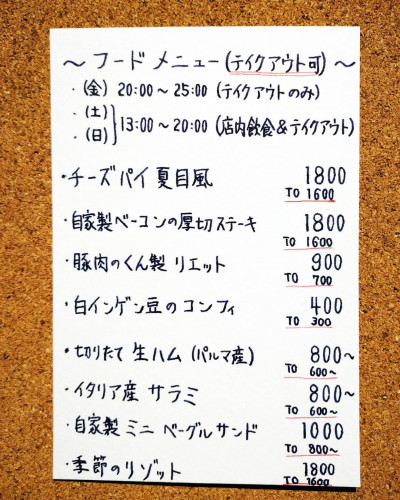 ～ フード メニュー (テイクアウト可) ～
・(金) 20:00～25:00 (テイクアウトのみ)
・(土)
・(日) 13:00～20:00 (店内飲食&テイクアウト)
・チーズパイ 夏目風 1800
TO 1600
・自家製ベーコンの厚切ステーキ 1800
TO 1600
・豚肉のくん製 リエット 900
TO 700
・白インゲン豆のコンフィ 400
TO 300
・切りたて 生ハム (パルマ産) 800～
TO 600～
・イタリア産 サラミ 800～
TO 600～
・自家製 ミニ ベーグルサンド 1000
TO 800～
・季節のリゾット 1800
TO 1600